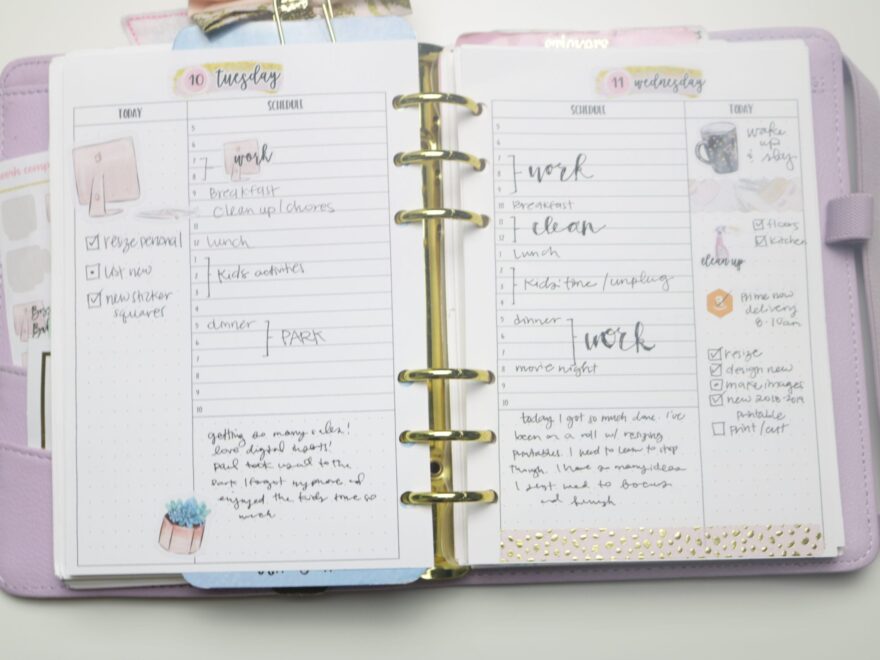 10 tuesday
TODAY
SCHEDULE
5
6
7
8
work
9
Breakfast
Clean up / chores
12
lunch
1
2
Kids activities
3
5
dinner
6
PARK
7
8
9
10
resize personal
list new
new sticker
squares
getting so many sales!
love digital
took us all to the
park I forgot my phone and
enjoyed the kids time so
much
11 wednesday
SCHEDULE
TODAY
5
6
7
work
8
9
10
Breakfast
11
clean
12
1
Lunch
2
3
Kids time / unplug
5
dinner
6
work
7
8
movie night
9
10
today I got so much done. I've
been on a roll w/ resizing
printables. I need to learn to stop
though. I have so many ideas
I just need to focus
and finish
wake
up
& slay
floors
kitchen
clean up
Prime now
delivery
8-10am
resize
design new
make images
new 2018-2019
printable
print / cut